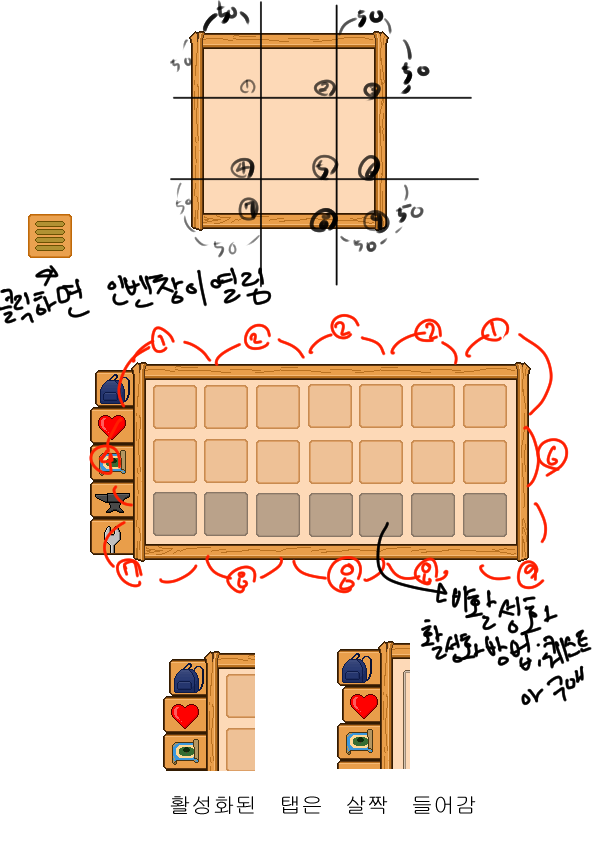 50 50
50 50
① ② ③
④ ⑤ ⑥
50 ⑦ ⑧ ⑨ 50
50 50
클릭하면 인벤창이 열림
① ② ② ② ①
④ ⑥
⑦ ⑧ ⑧ ⑧ ⑨
비활성화
활성화방법:퀘스트
아 구매
활성화된 탭은 살짝 들어감